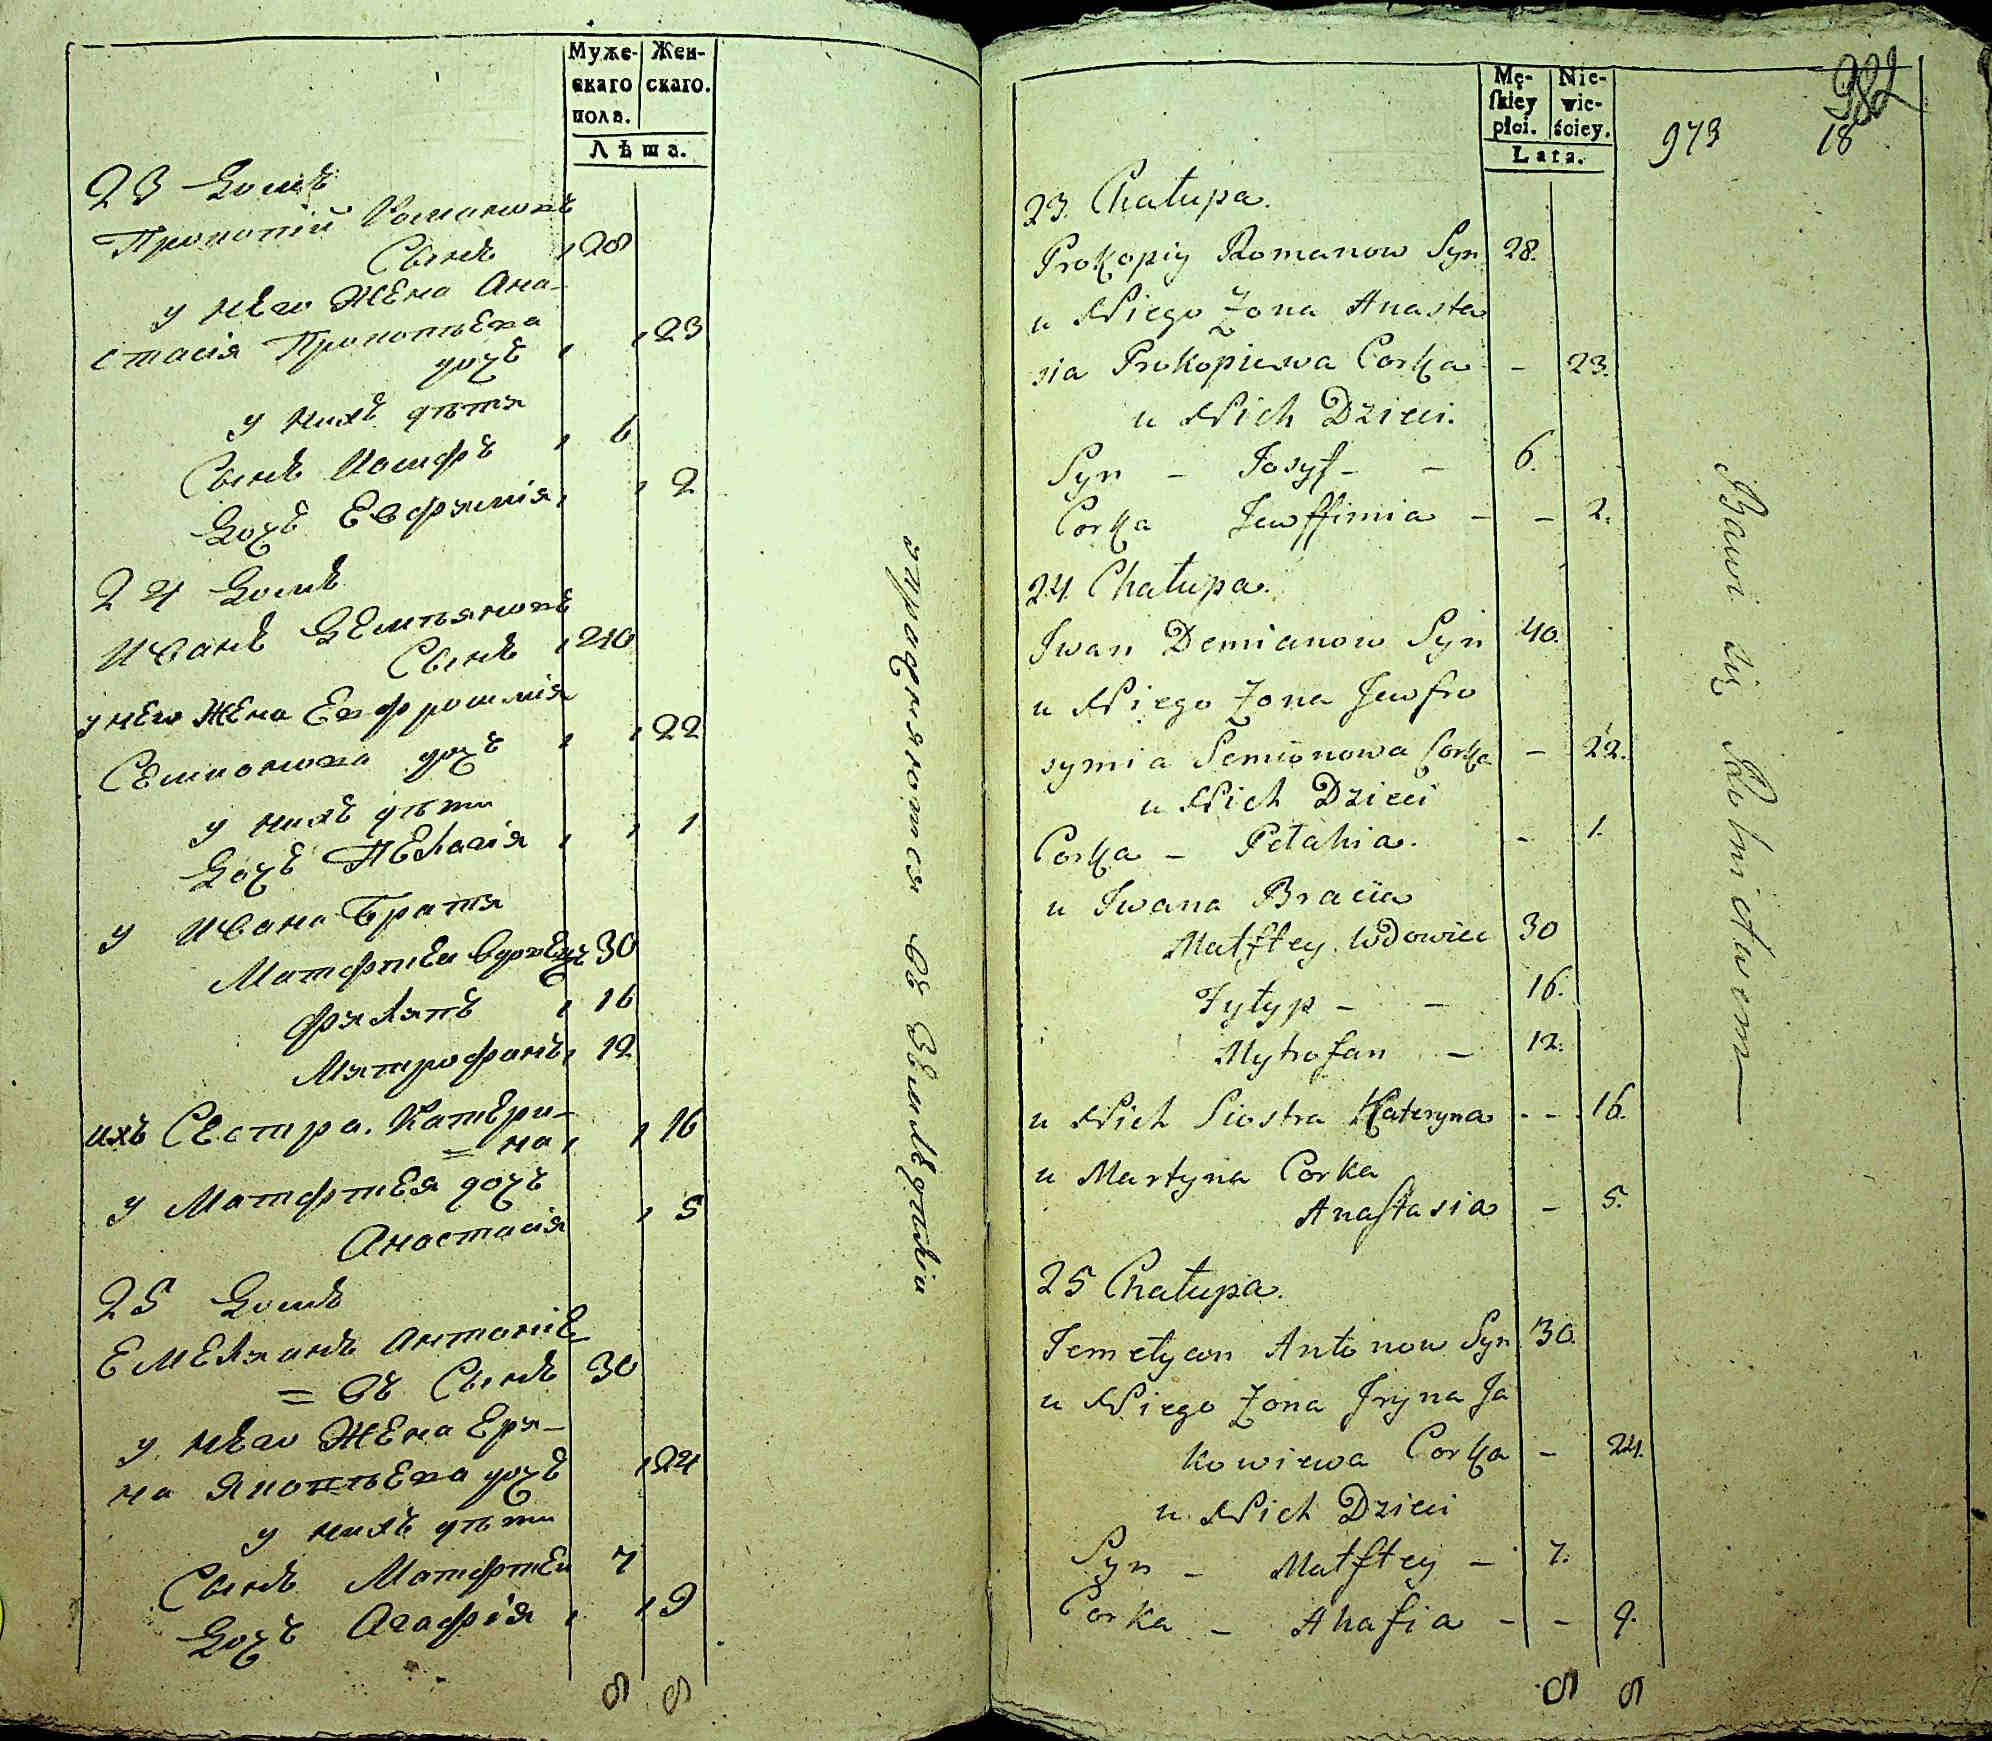 Муже-
скаго
пола.
Жен-
скаго.
Лѣта.
23 Домъ
Прокопій Романовъ
Сынъ , 28
у него Жена Ана-
стасія Прокопьева
дочь , , 23
у нихъ дѣтя
Сынъ Иосифъ , 6
Дочь Евфимія , , 2
24 Домъ
Иванъ Демьяновъ
Сынъ , 40
у него Жена Евфросимія
Семионова дочь , , 22
у нихъ дѣти
Дочь Пелагія , , 1
у Ивана Братя
Матфтей вдовецъ 30
Филяпъ , 16
Митрофанъ , 12
ихъ Сестра Катери-
=на , , 16
у Матфтея дочь
Анастасія , 5
25 Домъ
Емелянъ Антоніе
= въ Сынъ 30
у него Жена Еря-
на Якопльева дочь , 24
у нихъ дѣти
Сынъ Матфтей 7
Дочь Агафія , , 9
8 8
упражняются въ Земледѣліи
Mę-
skiey
płci.
Nie-
wie-
ściey.
Lata.
973 18
982
23. Chałupa.
Prokopiy Romanow Syn 28.
u Niego Zona Anasta
sia Prokopiewa Corka - 23.
u Nich Dzieci.
Syn - Josyf - - 6.
Corka Jewffimia - - 2.
24. Chałupa.
Jwan Demianow Syn 40.
u Niego Zona Jewfro
symia Semionowa Corka - 22.
u Nich Dzieci
Corka - Pełahia. - 1.
u Jwana Bracia
Matftey Wdowiec 30
Fyłyp - - 16.
Mytrofan - 12.
u Nich Siostra Kateryna - - 16.
u Martyna Corka
Anastasia - 5.
25 Chałupa.
Jemełyan Antonow Syn 30.
u Niego Zona Jryna Ja
kowiewa Corka - 24.
u Nich Dzieci
Syn - Matftey - 7.
Corka - Ahafia - - 9.
8 8
Bawi się Rolnictwem